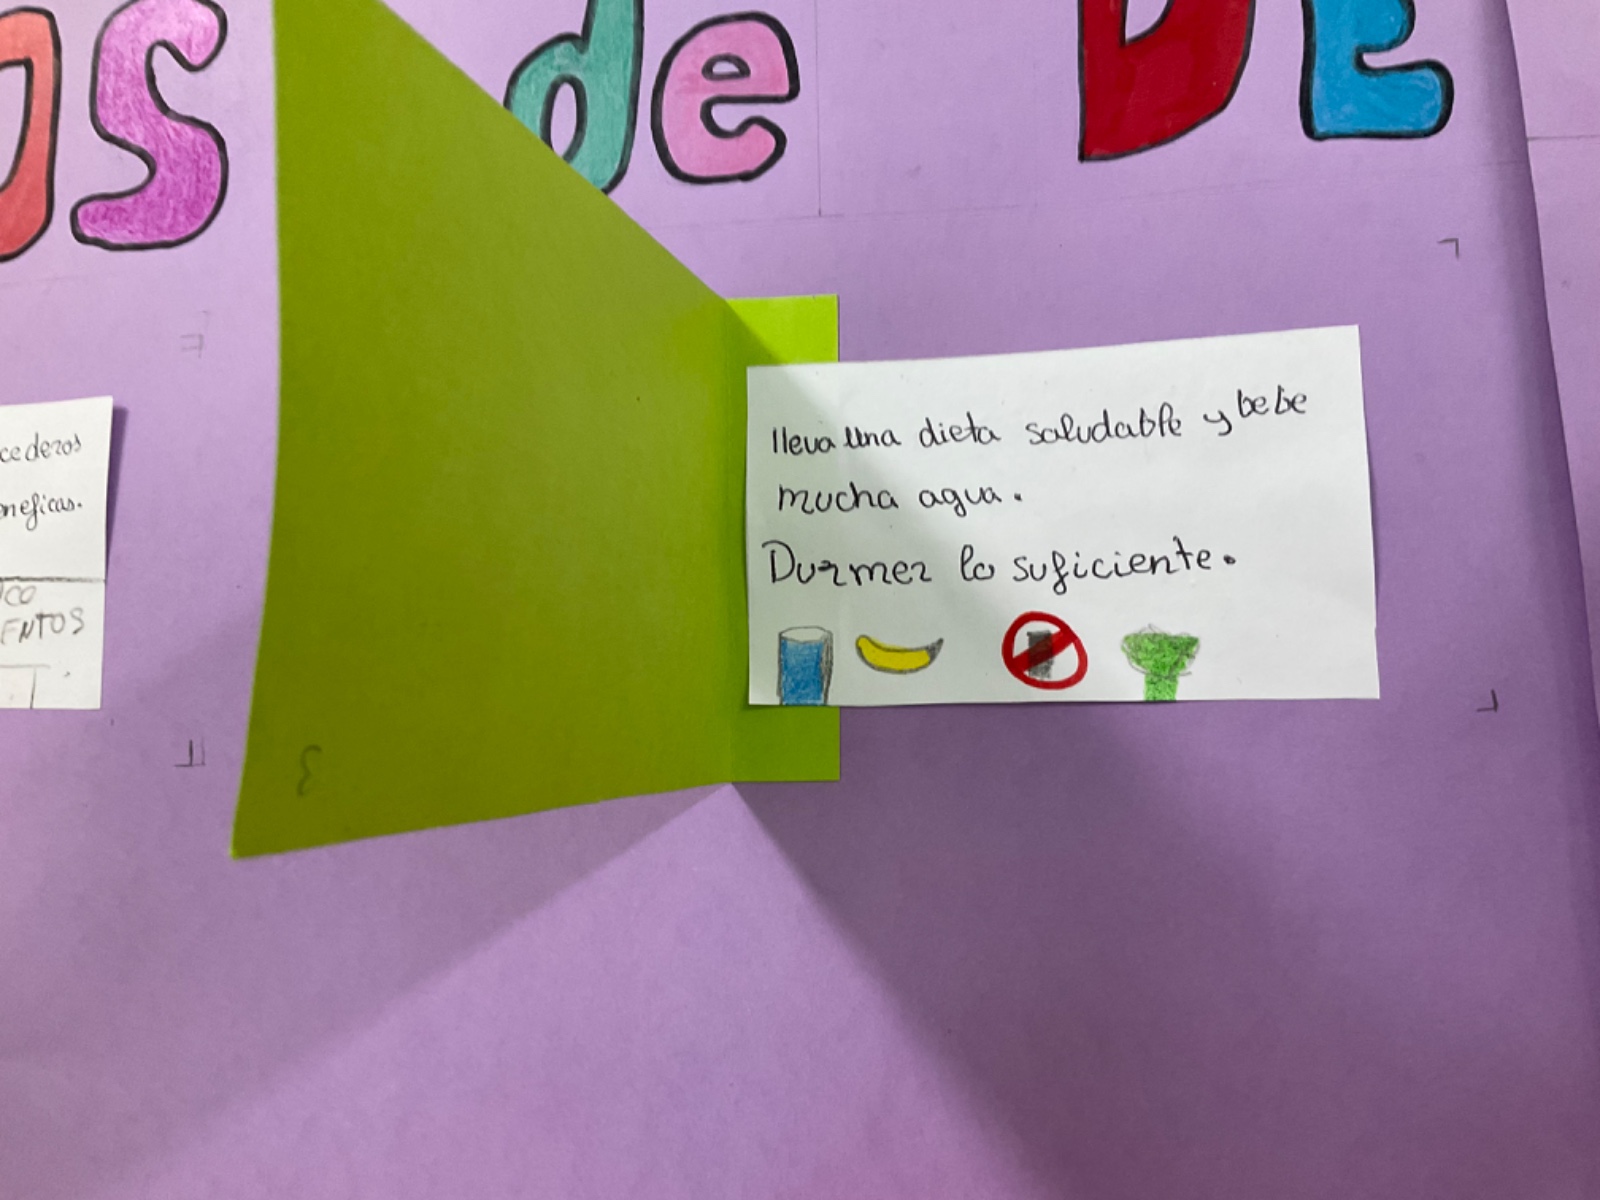 OS de DE
cederos
neficas.
CO
ENTOS
lleva una dieta saludable y bebe
mucha agua.
Durmer lo suficiente.
3